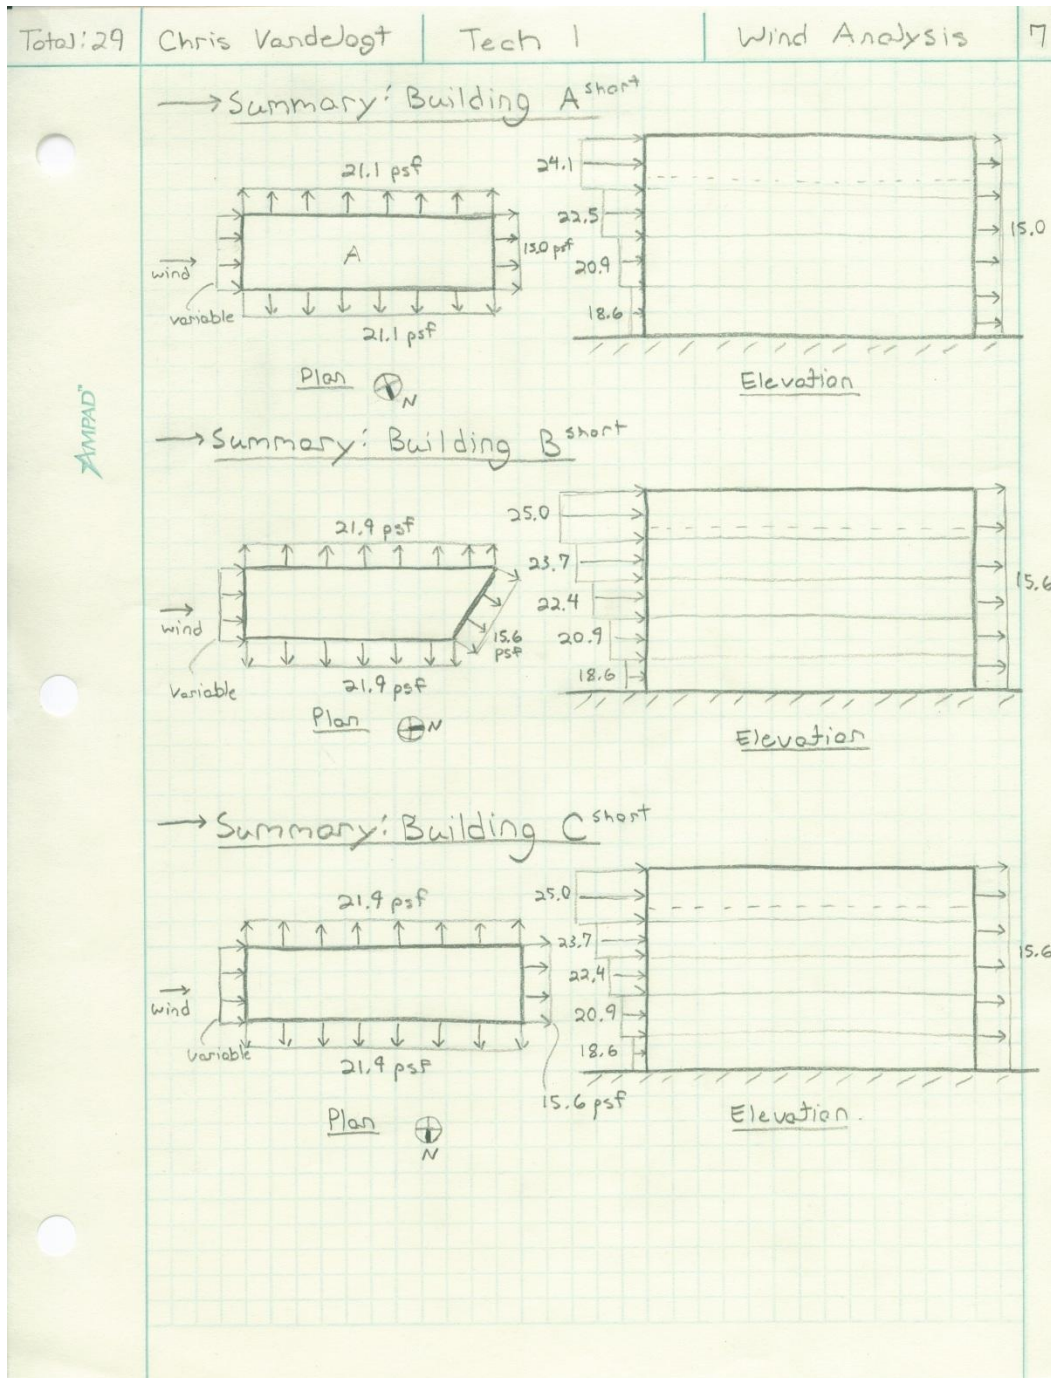 Total: 29 Chris Vandelogt Tech 1 Wind Analysis 7
→ Summary: Building A short
21.1 psf
A
wind
variable
15.0 psf
21.1 psf
Plan
N
24.1
22.5
20.9
18.6
15.0
Elevation
AMPAD™
→ Summary: Building B short
21.9 psf
wind
variable
15.6
psf
21.9 psf
Plan
N
25.0
23.7
22.4
20.9
18.6
15.6
Elevation
→ Summary: Building C short
21.9 psf
wind
variable
21.9 psf
15.6 psf
Plan
N
25.0
23.7
22.4
20.9
18.6
15.6
Elevation.